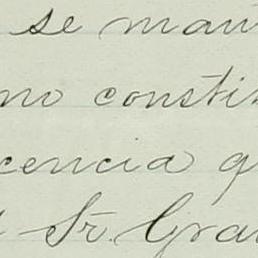 se man
no consti
cencia q
Sr. Gra